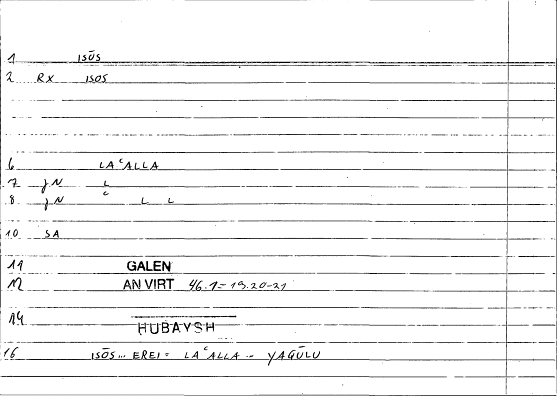 1 ISŌS
2 RX ISOS
6 LAʿALLA
7 JN L
8 JN ʿ L L
10 SA
11 GALEN
12 AN VIRT 46.1=19.20-21
14 HUBAYSH
16 ISŌS... EREI= LAʿALLA... YAQŪLU